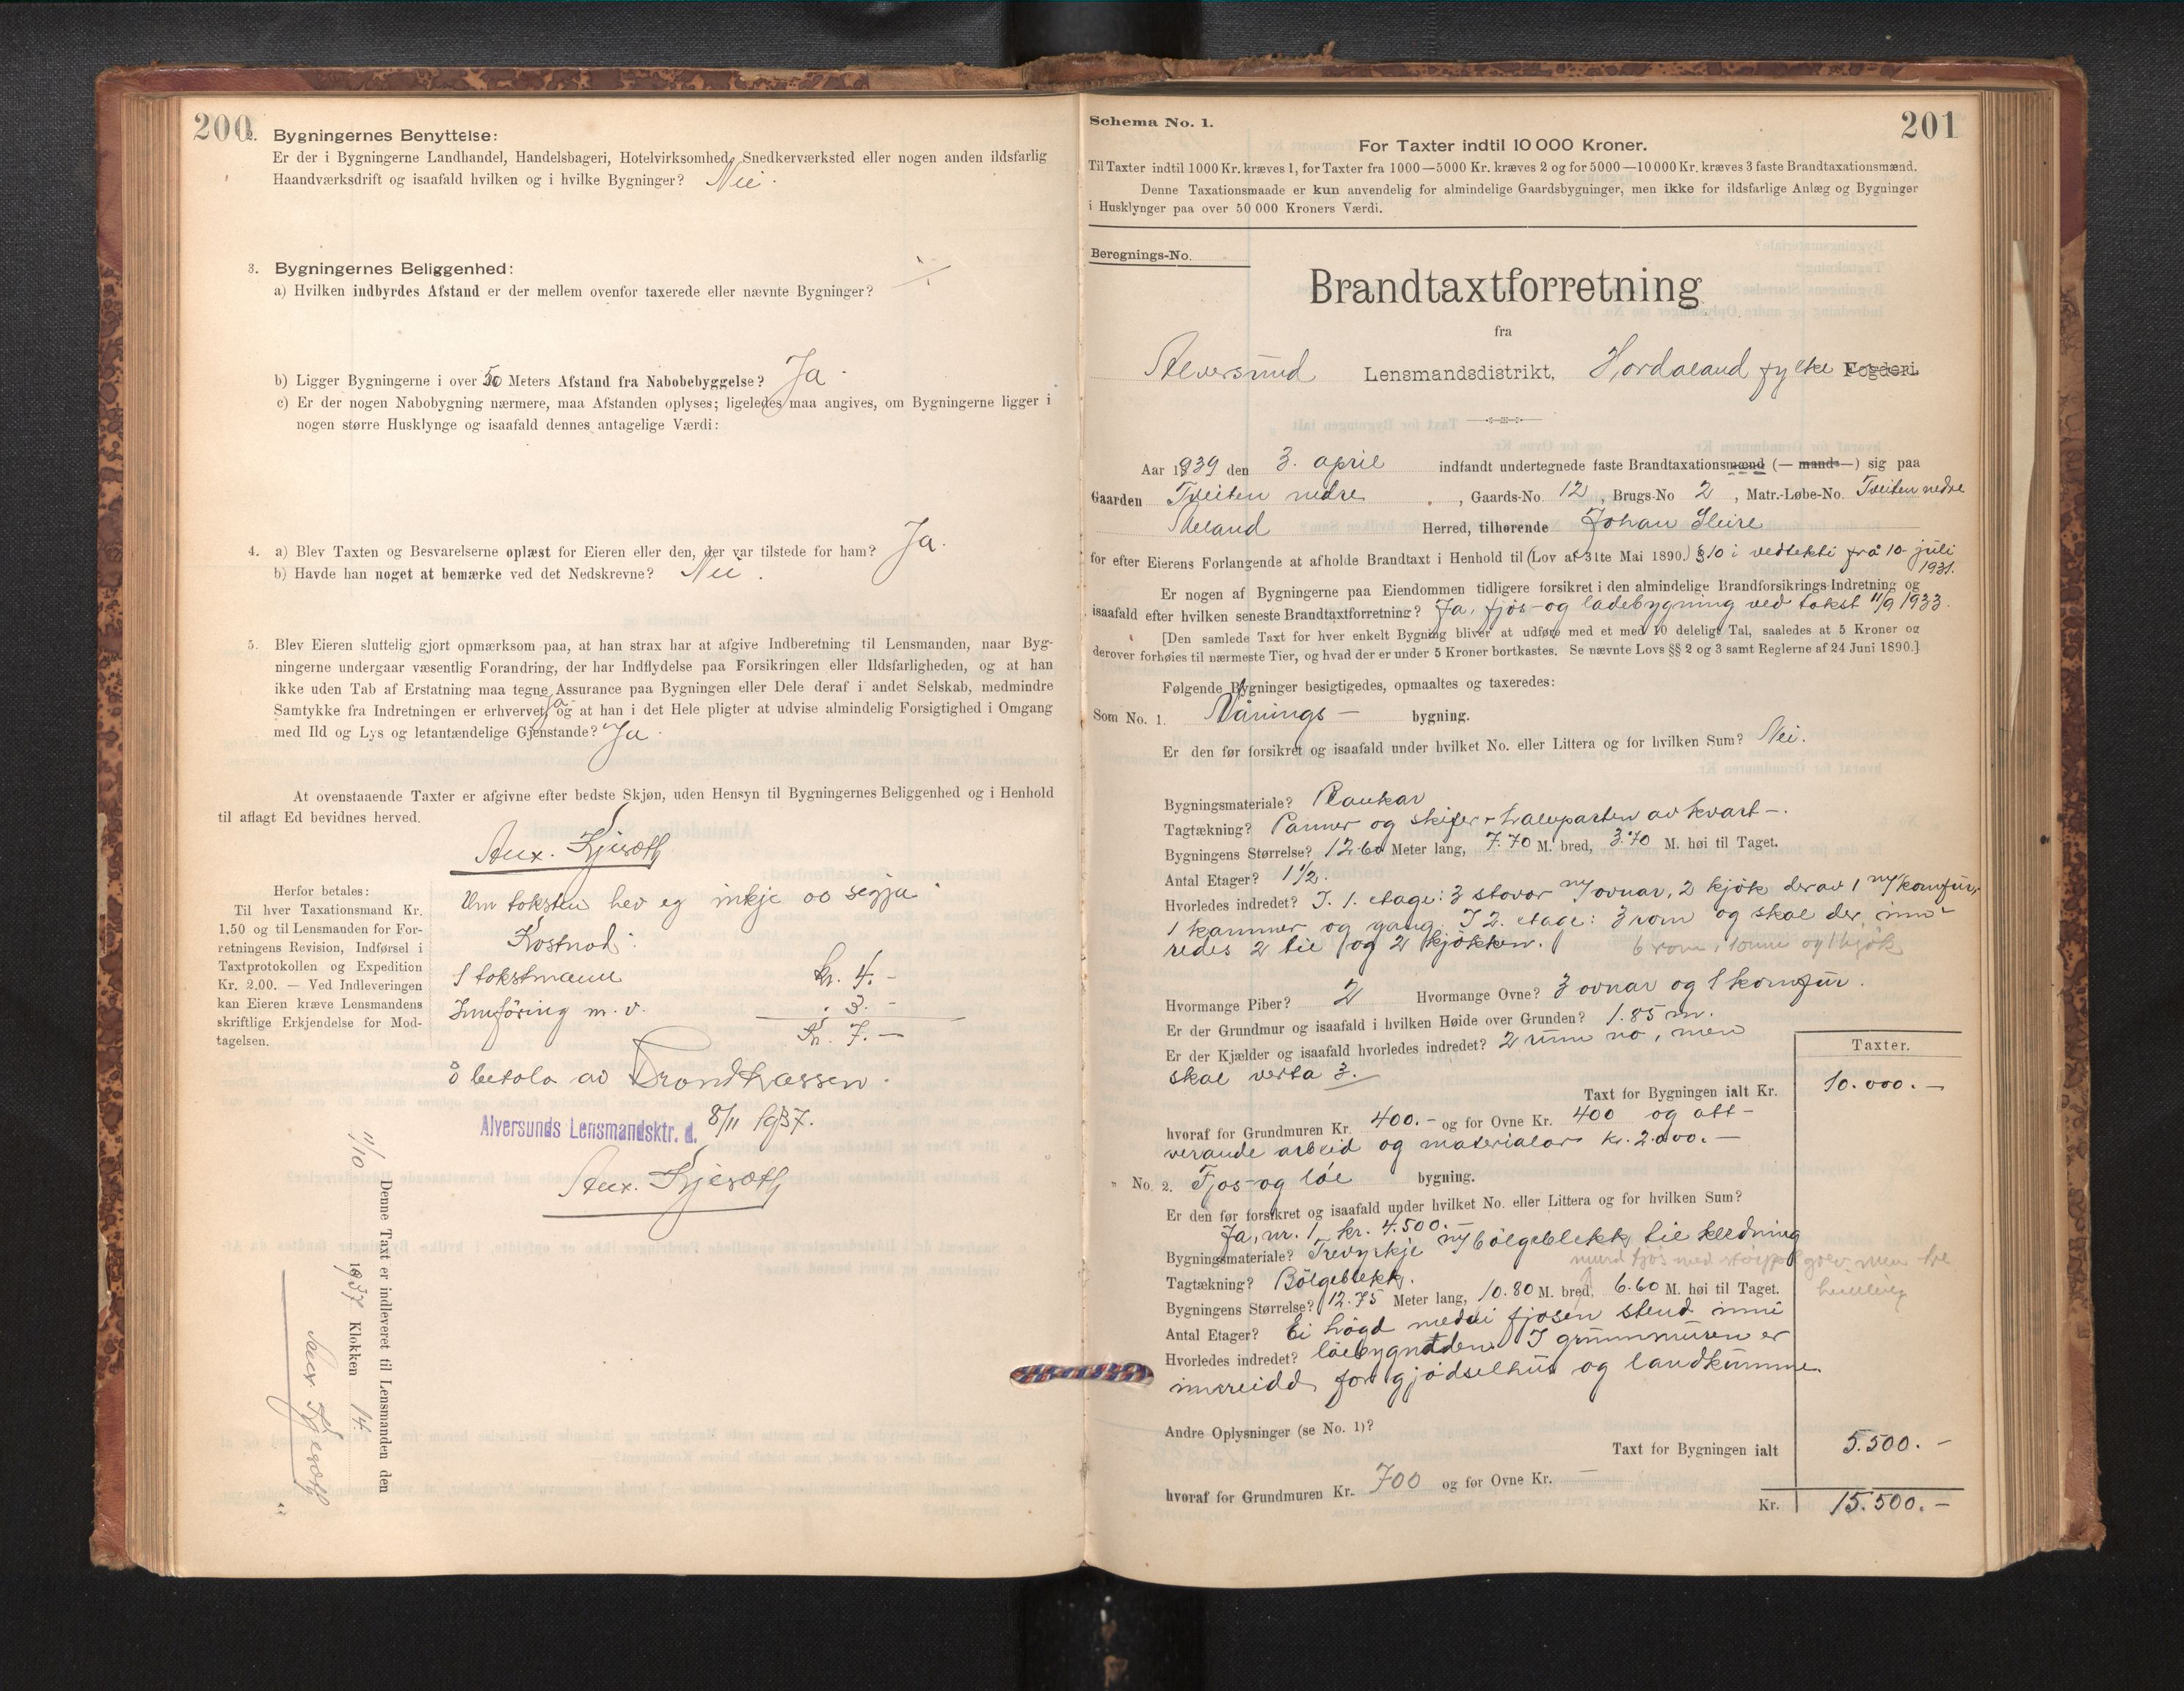 200
2. Bygningernes Benyttelse:
Er der i Bygningerne Landhandel, Handelsbageri, Hotelvirksomhed, Snedkerværksted eller nogen anden ildsfarlig
Haandværksdrift og isaafald hvilken og i hvilke Bygninger? Nei.
3. Bygningernes Beliggenhed:
a) Hvilken indbyrdes Afstand er der mellem ovenfor taxerede eller nævnte Bygninger?
b) Ligger Bygningerne i over 50 Meters Afstand fra Nabobebyggelse? Ja.
c) Er der nogen Nabobygning nærmere, maa Afstanden oplyses; ligeledes maa angives, om Bygningerne ligger i
nogen større Husklynge og isaafald dennes antagelige Værdi:
4. a) Blev Taxten og Besvarelserne oplæst for Eieren eller den, der var tilstede for ham? Ja.
b) Havde han noget at bemærke ved det Nedskrevne? Nei.
5. Blev Eieren sluttelig gjort opmærksom paa, at han strax har at afgive Indberetning til Lensmanden, naar Byg-
ningerne undergaar væsentlig Forandring, der har Indflydelse paa Forsikringen eller Ildsfarligheden, og at han
ikke uden Tab af Erstatning maa tegne Assurance paa Bygningen eller Dele deraf i andet Selskab, medmindre
Samtykke fra Indretningen er erhvervet, Ja og at han i det Hele pligter at udvise almindelig Forsigtighed i Omgang
med Ild og Lys og letantændelige Gjenstande? Ja.
At ovenstaaende Taxter er afgivne efter bedste Skjøn, uden Hensyn til Bygningernes Beliggenhed og i Henhold
til aflagt Ed bevidnes herved.
Herfor betales:
Til hver Taxationsmand Kr.
1,50 og til Lensmanden for For-
retningens Revision, Indførsel i
Taxtprotokollen og Expedition
Kr. 2.00. — Ved Indleveringen
kan Eieren kræve Lensmandens
skriftlige Erkjendelse for Mod-
tagelsen.
Um taksten hev eg inkje å segja.
Kostnad:
1 takstmann kr. 4.-
Innföring m.v. " 3.-
Kr. 7.-
å betala av Brandkassen.
Alversunds Lensmandsktr. d. 8/11 1937.
Denne Taxt er indleveret til Lensmanden den
11/10 1937 Klokken 14
Schema No. 1.
201
For Taxter indtil 10 000 Kroner.
Til Taxter indtil 1000 Kr. kræves 1, for Taxter fra 1000—5000 Kr. kræves 2 og for 5000—10 000 Kr. kræves 3 faste Brandtaxationsmænd.
Denne Taxationsmaade er kun anvendelig for almindelige Gaardsbygninger, men ikke for ildsfarlige Anlæg og Bygninger
i Husklynger paa over 50 000 Kroners Værdi.
Beregnings-No.
Brandtaxtforretning
fra
Alversund Lensmandsdistrikt, Hordaland fylke Fogderi.
Aar 1939 den 3. april indfandt undertegnede faste Brandtaxationsmænd (— mand —) sig paa
Gaarden Tveiten nedre, Gaards-No. 12, Brugs-No 2, Matr.-Løbe-No. Tveiten nedre
Meland Herred, tilhørende Johan Fleire
for efter Eierens Forlangende at afholde Brandtaxt i Henhold til (Lov af 31te Mai 1890.) §10 i vedtekti frå 10. juli
1931.
Er nogen af Bygningerne paa Eiendommen tidligere forsikret i den almindelige Brandforsikrings-Indretning og
isaafald efter hvilken seneste Brandtaxtforretning? Ja, fjös- og ladebygning ved takst 11/9 1933.
[Den samlede Taxt for hver enkelt Bygning bliver at udføre med et med 10 deleligt Tal, saaledes at 5 Kroner og
derover forhøies til nærmeste Tier, og hvad der er under 5 Kroner bortkastes. Se nævnte Lovs §§ 2 og 3 samt Reglerne af 24 Juni 1890.]
Følgende Bygninger besigtigedes, opmaaltes og taxeredes:
Som No. 1. Vånings- bygning.
Er den før forsikret og isaafald under hvilket No. eller Littera og for hvilken Sum? Nei.
Bygningsmateriale? Plankar
Tagtækning? Panner og skifer - halvparten av kvart -.
Bygningens Størrelse? 12.60 Meter lang, 7.70 M. bred, 3.70 M. høi til Taget.
Antal Etager? 1 1/2.
Hvorledes indredet? I 1. etage: 3 stovor m/ ovnar, 2 kjök derav 1 m/ komfur,
1 kammer og gang. I 2. etage: 3 rom og skal der inn-
redes 2 til og 2 kjökken.
Hvormange Piber? 2 Hvormange Ovne? 3 ovnar og 1 komfur.
Er der Grundmur og isaafald i hvilken Høide over Grunden? 1.85 m.
Er der Kjælder og isaafald hvorledes indredet? 2 rum no, men
skal verta 3.
Taxter.
Taxt for Bygningen ialt Kr. 10.000.-
hvoraf for Grundmuren Kr. 400.- og for Ovne Kr. 400 og att-
verande arbeid og materialar kr. 2.000.-
" No. 2. Fjos- og löe bygning.
Er den før forsikret og isaafald under hvilket No. eller Littera og for hvilken Sum?
Ja, nr. 1, kr. 4.500.-
Bygningsmateriale? Trevyrkje m/ bölgeblekk til kledning
Tagtækning? Bölgeblekk.
Bygningens Størrelse? 12.75 Meter lang, 10.80 M. bred, 6.60 M. høi til Taget.
Antal Etager? Ei högd med fjosen stend inni
Hvorledes indredet? löebygnaden. I grunnmuren er
innreidd for gjödselhus og landkumme.
Andre Oplysninger (se No. 1)?
Taxt for Bygningen ialt 5.500.-
hvoraf for Grundmuren Kr. 700 og for Ovne Kr. —
Kr. 15.500.-